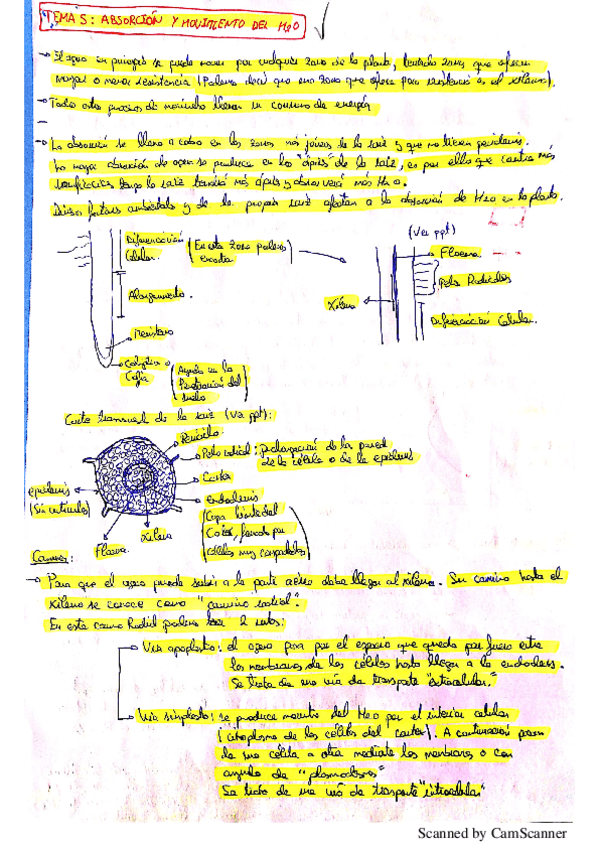 TEMA 5: ABSORCIÓN Y MOVIMIENTO DEL H2O
→ El agua en principio se puede mover por cualquier zona de la planta, teniendo zonas que ofrecen
mayor o menor resistencia (Podemos decir que una zona que ofrece poca resistencia es el xilema).
→ Todos estos procesos de movimiento llevan un consumo de energía
→ La absorción se lleva a cabo en las zonas más jóvenes de la raíz y que no tienen peridermis.
La mayor absorción de agua se produce en los "ápices" de la raíz, es por ello que cuanta más
ramificación tenga la raíz tendrá más ápices y absorverá más H2O.
Diversos factores ambientales y de la propia raíz afectan a la absorción de H2O en la planta.
(Ver ppt)
Diferenciación
Celular.
(En esta zona podemos
encontrar
Floema.
Pelos Radiculares
Xilema
Diferenciación Celular.
Alargamiento.
Meristemo
Caliptra o
Cofia
(Ayuda en la
Penetración del
suelo
Corte transversal de la raíz (Ver ppt):
Periciclo.
Pelo radical: prolongación de la pared
de la célula o de la epidermis
Corteza
epidermis
(Sin cutícula)
endodermis
(Capa límite del
Cortex, formada por
células muy compactadas
Xilema
Floema
Camino:
→ Para que el agua pueda subir a la parte aérea debe llegar al xilema. Su camino hasta el
xilema se conoce como "camino radial".
En este camino Radial podemos tener 2 rutas:
→ Vía apoplasto: el agua pasa por el espacio que queda por fuera entre
las membranas de las células hasta llegar a la endodermis.
Se trata de una vía de transporte "extracelular."
→ Vía simplasto: se produce movimiento del H2O por el interior celular
(citoplasma de las células del cortex). A continuación pasa
de una célula a otra mediante las membranas o con
ayuda de "plasmodesmos"
Se trata de una vía de transporte "intracelular"
Scanned by CamScanner